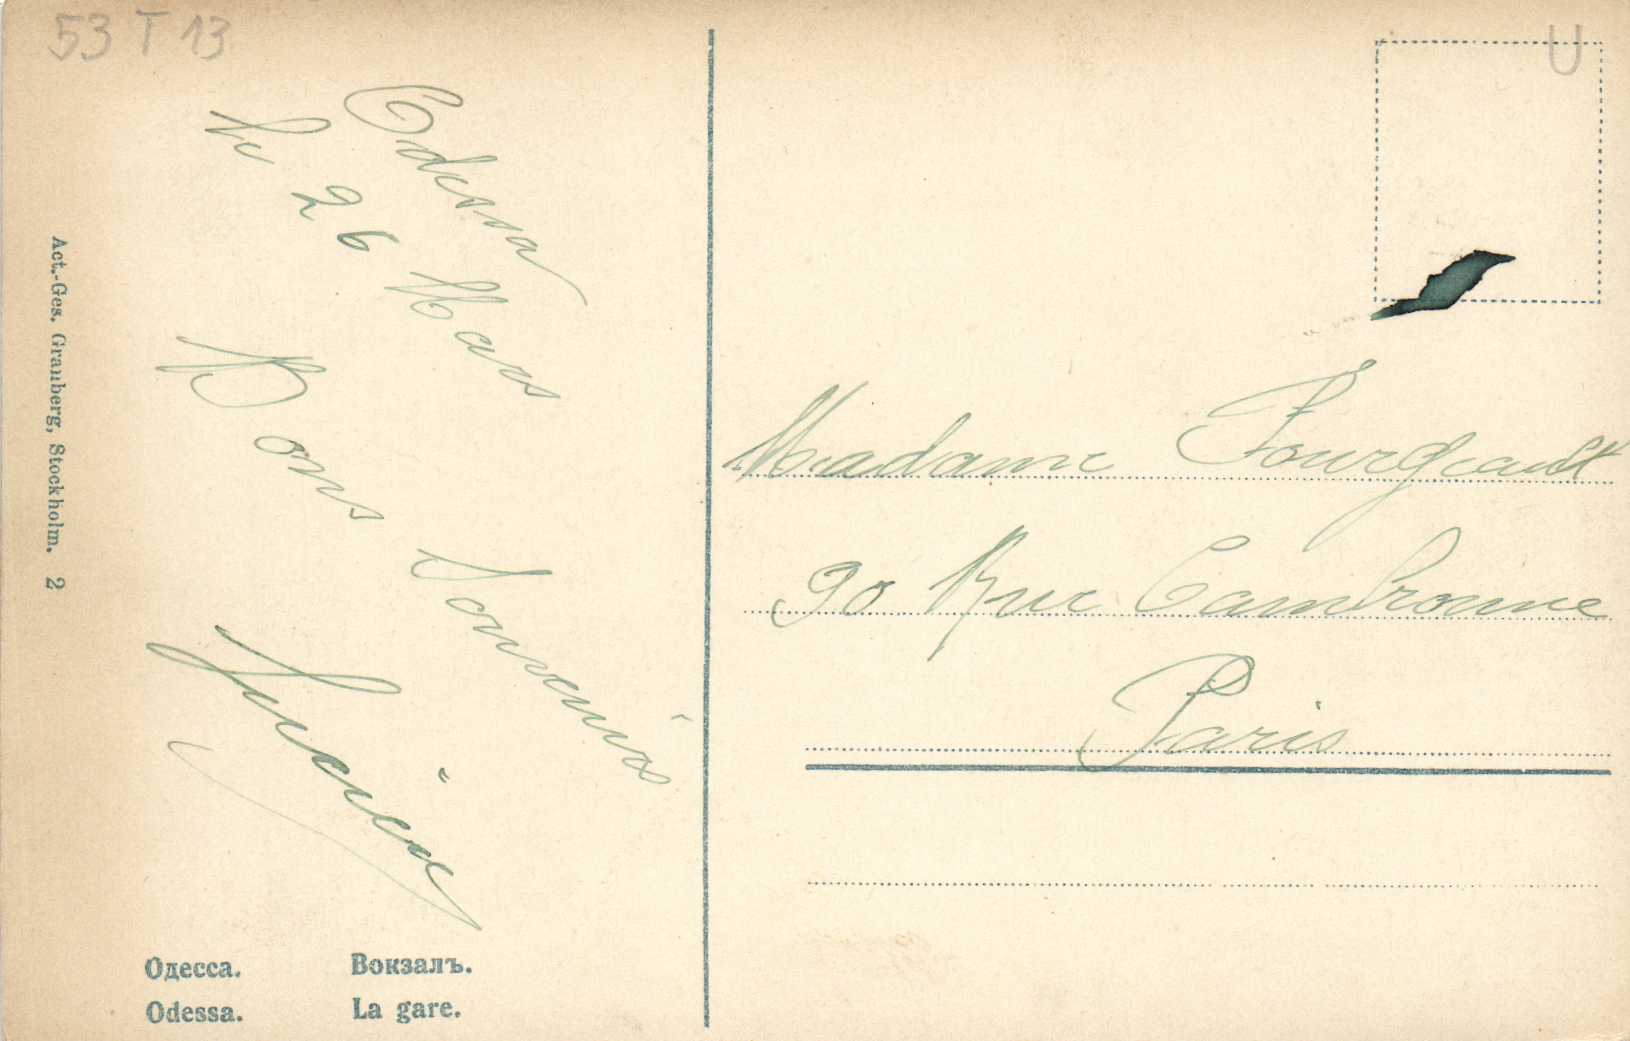 53 T 13
U
Odessa
le 26 Mars
Bons Souvenirs
Lucien
Madame Fourgeault
90 Rue Cambronne
Paris
Act.-Ges. Granberg, Stockholm. 2
Одесса. Вокзалъ.
Odessa. La gare.